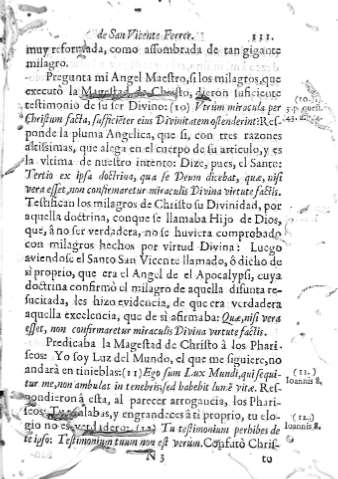 de San Vicente Ferrer. 111.
muy reformada, como assombrada de tan gigante
milagro.
Pregunta mi Angel Maestro, si los milagros, que
executò la Magestad de Christo, dieron suficiente
testimonio de su ser Divino: (10) Vtrum miracula per
Christum facta, sufficiẽter eius Divinitatem ostenderint: Res-
ponde la pluma Angelica, que si, con tres razones
altissimas, que alega en el cuerpo de su articulo, y es
la vltima de nuestro intento: Dize, pues, el Santo:
Tertio ex ipsa doctrina, qua se Deum dicebat, quæ, nisi
vera esset, non confirmaretur miraculis Divina virtute factis.
Testifican los milagros de Christo su Divinidad, por
aquella doctrina, conque se llamaba Hijo de Dios,
que, à no ser verdadera, no se huviera comprobado
con milagros hechos por virtud Divina: Luego
aviendose el Santo San Vicente llamado, ô dicho de
si proprio, que era el Angel de el Apocalypsi, cuya
doctrina confirmò el milagro de aquella difunta re-
sucitada, les hizo evidencia, de que era verdadera
aquella excelencia, que de si afirmaba: Quæ, nisi vera
esset, non confirmaretur miraculis Divina virtute factis.
Predicaba la Magestad de Christo à los Phari-
seos: Yo soy Luz del Mundo, el que me siguiere, no
andarà en tinieblas: (11) Ego sum Lux Mundi, qui sequi-
tur me, non ambulat in tenebris, sed habebit lumẽ vitæ. Res-
pondieron à esta, al parecer arrogancia, los Phari-
seos: Tu te alabas, y engrandeces à ti proprio, tu elo-
gio no es verdadero: (12) Tu testimonium perhibes de
te ipso: Testimonium tuum non est verum. Confutò Chris-
N 3 to
(10.)
3. p. quæst.
43.
(11.)
Ioannis 8.
(12.)
Ioannis 8.